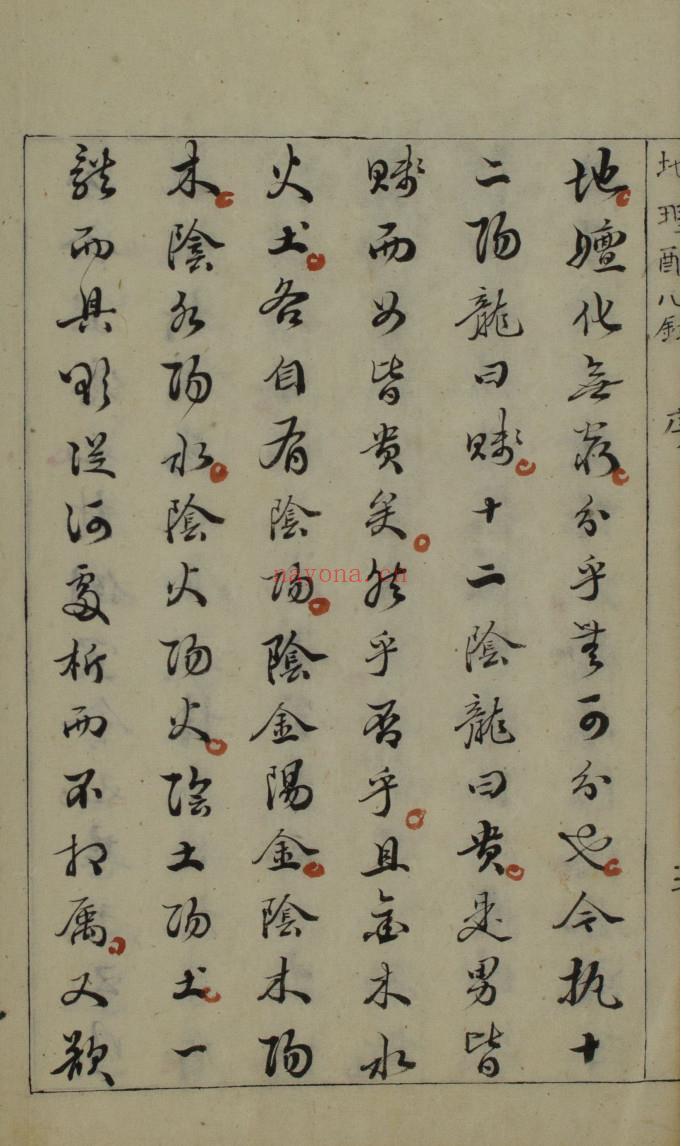 地理酉八 序
地嬗化無窮分乎無可分也今执十
二阳龍曰賤十二陰龍曰貴是男皆
賤而女皆貴矣然乎否乎且金木水
火土各自有陰阳陰金陽金陰木阳
木陰水阳水陰火阳火陰土阳土一
體而具從河處析而不相屬又欲
nayona.cn